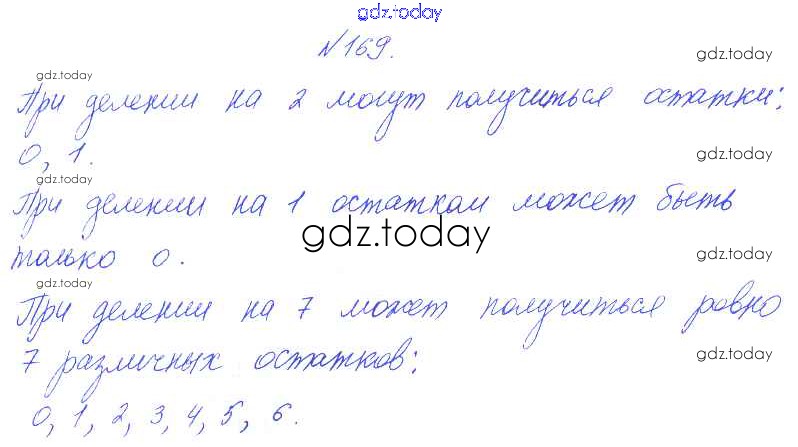 gdz.today
№169.
gdz.today
gdz.today
При делении на 2 могут получиться остатки:
0, 1.
gdz.today
gdz.today
При делении на 1 остатком может быть
gdz.today
только 0.
gdz.today
gdz.today
При делении на 7 может получиться ровно
7 различных остатков:
gdz.today
0, 1, 2, 3, 4, 5, 6.